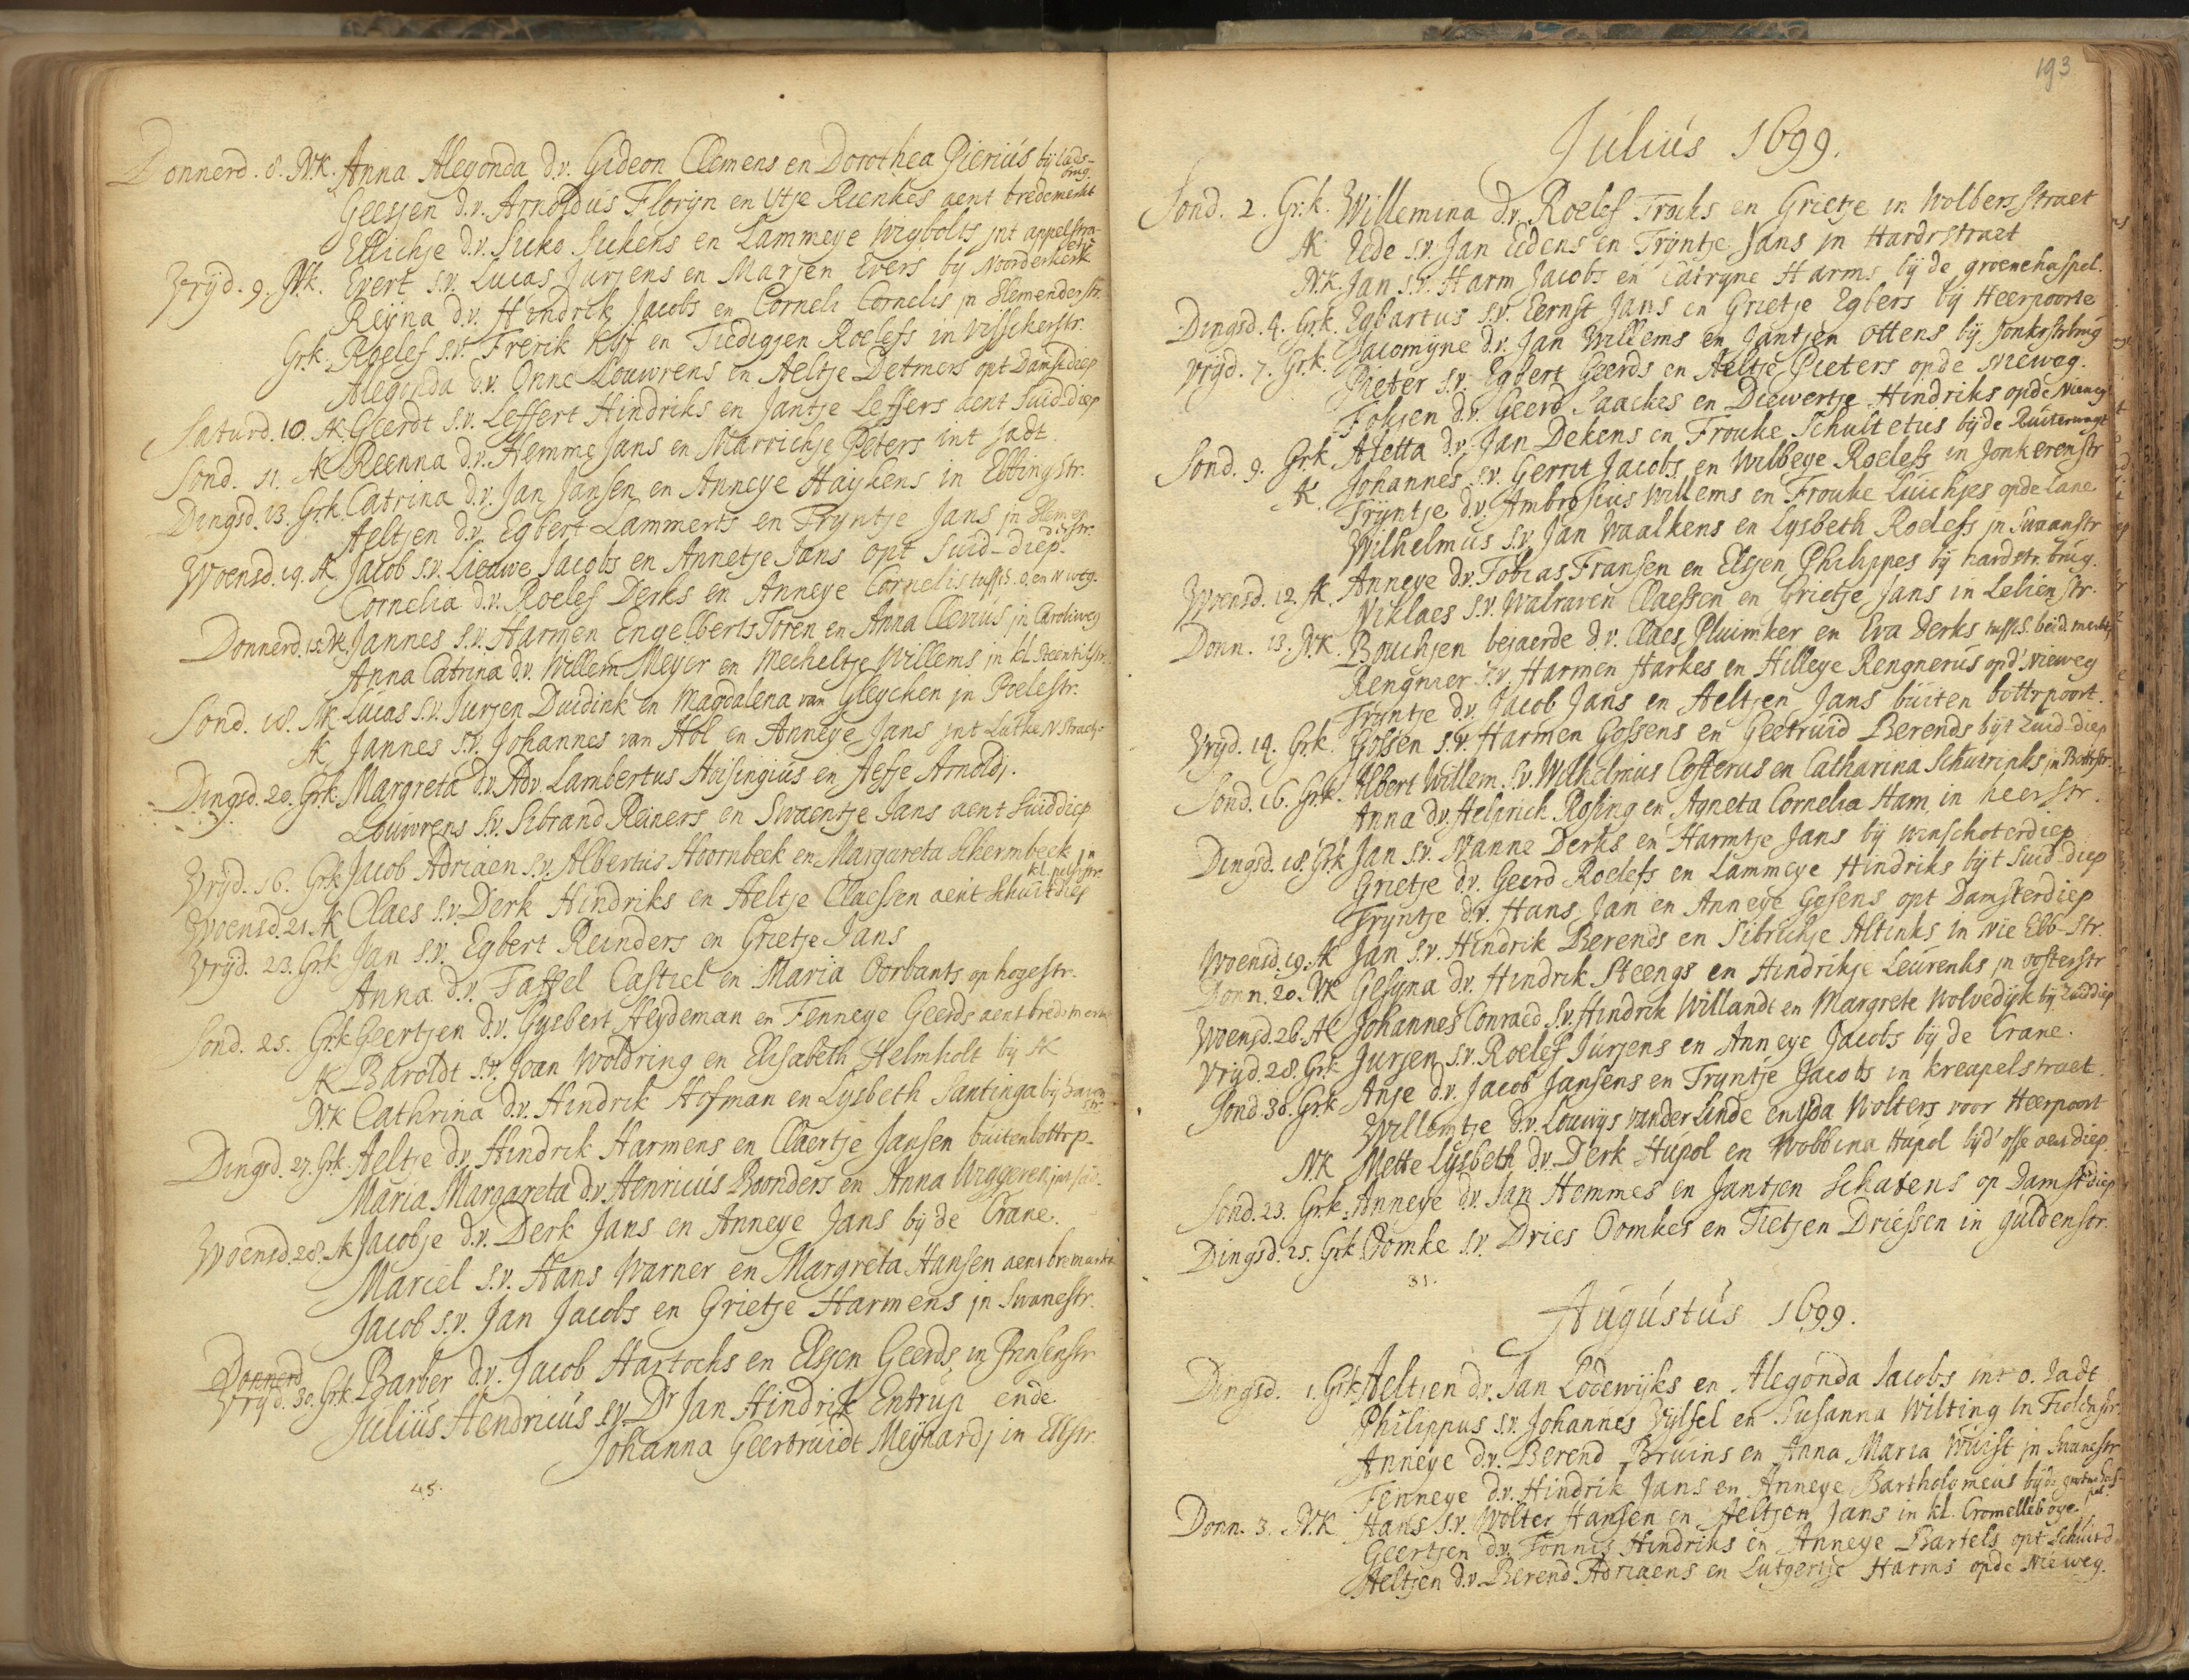 Donnerd. 8. N.K. Anna Alegonda d.v. Gideon Clemens en Dorothea Pierius bij lads-
brug.
Geesjen d.v. Arnoldus Florijn en Ytje Rienkes aent bredemerkt
Ellichje d.v. Suko Sukens en Lammeye Wigbolts jnt appelstra-
etie
Vrijd. 9. N.k. Evert s.v. Lucas Jurjens en Marjen Evers bij Noorderkerk
Reijna d.v. Hindrik Jacobs en Corneli Cornelis jn Hemenderstr.
Grk. Roelef s.v. Frerik Kijf en Tiedigjen Roelefs in Visscherstr.
Alegonda d.v. Onne Louwrens en Aeltje Detmers opt Damstdiep
Saturd. 10. AK Geerdt s.v. Leffert Hindriks en Jantje Leffers aent Suiddiep
Sond. 11. AK Reenna d.v. Hemme Jans en Marrichje Peters int Jadt.
Dingsd. 13. Grk. Catrina d.v. Jan Jansen en Anneye Haijkens in Ebbingstr.
Aeltjen d.v. Egbert Lammerts en Trijntje Jans jn Hemen
derstr.
Woensd. 19. AK Jacob s.v. Lieuwe Jacobs en Annetje Jans opt Suid-diep.
Cornelia d.v. Roelef Derks en Anneye Cornelis tuss. s. o. en n weg.
Donnerd. 15. NK. Jannes s.v. Harmen Engelberts Toren en Anna Clevius jn Caroliweg
Anna Catrina d.v. Willem Meyer en Mecheltje Willems jn kl. Steentilstr.
Sond. 18. NK Lucas s.v. Jurjen Duidink en Magdalena van Gleycken jn Poelestr.
AK Jannes s.v. Johannes van Hol en Anneye Jans jnt Lutke N Straetj.
Dingsd. 20. Grk. Margreta d.v. Adv. Lambertus Hoisingius en Aefje Arnoldj.
Louwrens s.v. Sibrand Reiners en Swaentje Jans aent Suiddiep
Vrijd. 16. Grk Jacob Adriaen s.v. Albertus Hoornbeek en Margareta Schermbeek jn
kl. pelsstr.
Woensd. 21. AK Claes s.v. Derk Hindriks en Aeltje Claessen aent Schuitdiep
Vrijd. 23. Grk Jan s.v. Egbert Reinders en Grietje Jans
Anna d.v. Taffel Castiel en Maria Oorbants op hogestr.
Sond. 25. Grk Geertjen d.v. Gysbert Heydeman en Fenneye Geerds aent bredmerk
AK Baroldt s.v. Joan Woldring en Elisabeth Helmholt bij AK
N.K Cathrina d.v. Hindrik Hofman en Lysbeth Santinga bij
Dingsd. 27. Grk. Aeltje d.v. Hindrik Harmens en Claertje Jansen buitenbottrp-
Maria Margareta d.v. Henricus Roonders en Anna Wiggeren
Woensd. 28. AK Jacobje d.v. Derk Jans en Anneye Jans bij de Crane.
Marcel s.v. Hans Warner en Margreta Hansen aent bremarkt
Jacob s.v. Jan Jacobs en Grietje Harmens jn Swanestr.
Donnerd
Vrijd. 30. Grk. Barber d.v. Jacob Hartochs en Elsjen Geerds in Prinsenstr
Julius Hendricus s.v. Dr Jan Hindrik Entrup ende
Johanna Geertruidt Meijnardj in Ebstr.
45.
193
Julius 1699.
Sond. 2. Grk. Willemina d.v. Roelef Froks en Grietje in Wolbersstraet
AK Eede s.v. Jan Eedens en Trijntje Jans jn Hardrstraet
N.K. Jan s.v. Harm Jacobs en Catryne Harms bij de groenehaspel.
Dingsd. 4. Grk. Egbartus s.v. Eernst Jans en Grietje Egbers bij Heerpoorte
Jacomyne d.v. Jan Willems en Jantjen Ottens bij Jonkrstrbrug
Vrijd. 7. Grk. Pieter s.v. Egbert Geerds en Aeltje Pieters opde Nieweg.
Fokjen d.v. Geerd Saackes en Diewertje Hindriks opde Nieweg
Sond. 9. Grk Aletta d.v. Jan Dekens en Frouke Schultetus bij de Ruiterwagt
Johannes s.v. Gerrit Jacobs en Wilbeye Roelefs in Jonkerenstr
AK. Trijntje d.v. Ambrosius Willems en Frouke Luichjes opde Lane
Wilhelmus s.v. Jan Waalkens en Lysbeth Roelefs jn Swaanstr
Woensd. 12. AK. Anneye d.v. Tobias Fransen en Elsjen Philippes bij hardstr. brug.
Niklaes s.v. Walraven Claessen en Grietje Jans in Lelienstr.
Donn. 13. N.K. Bouchjen bejaerde d.v. Claes Pluimker en Eva Derks tuss. S. beid. markte
Rengnier s.v. Harmen Harkes en Hilleye Rengnerus opd' Nieweg
Trijntje d.v. Jacob Jans en Aeltjen Jans buiten bottrpoort.
Vrijd. 14. Grk. Gossen s.v. Harmen Gossens en Geetruid Berends bijt Zuid-diep
Sond. 16. Grk. Albert Willem. s.v. Wilhelmus Costerus en Catharina Schuirinks jn Bottrstr.
Anna d.v. Helprich Rosing en Agneta Cornelia Ham in heerstr.
Dingsd. 18. Grk Jan s.v. Nanne Derks en Harmtje Jans bij winschoterdiep
Grietje d.v. Geerd Roelefs en Lammeye Hindriks bijt Suid-diep
Trijntje d.v. Hans Jan en Anneye Gosens opt Damsterdiep
Woensd. 19. AK Jan s.v. Hindrik Berends en Sibrichje Altinks in Nie Ebb-Str.
Donn. 20. NK Gesyna d.v. Hindrik Steengs en Hindrikje Leurenks jn oosterstr
Woensd. 26. AK Johannes Conraed s.v. Hindrik Willandt en Margrete Wolvedijk bij Zuiddiep
Vrijd. 28. Grk Jurjen s.v. Roelef Jurjens en Anneye Jacobs bij de Crane.
Sond. 30. Grk Anje d.v. Jacob Jansens en Tryntje Jacobs in kreapelstraet.
Willemtje d.v. Louwys vander Linde en Yda Wolters voor Heerpoort
N.K Mette Lysbeth d.v. Derk Hupol en Wobbina Hupol bijd' osse aen diep.
Sond. 23. Grk. Anneye d.v. Jan Hemmes en Jantjen Schatens op Damstdiep
Dingsd. 25. Grk Oomke s.v. Dries Oomkes en Tietjen Driessen in guldenstr.
31.
Augustus 1699.
Dingsd. 1. Grk. Aeltjen d.v. Jan Lodewijks en Alegonda Jacobs int o. Jadt
Philippus s.v. Johannes Vijlsel en Susanna Wilting in Fieldnstr.
Anneye d.v. Berend Bruins en Anna Maria Wuist jn Suanestr
Fenneye d.v. Hindrik Jans en Anneye Bartholomeus bijde groenehas-
pel.
Donn. 3. N.K Hans s.v. Wolter Hansen en Aeltjen Jans in kl. Cromelleboge.
Geertjen d.v. Tonnis Hindriks en Anneye Bartels opt Schuitd.
Aeltjen d.v. Berend Adriaens en Lutgertje Harms opde Nieweg.